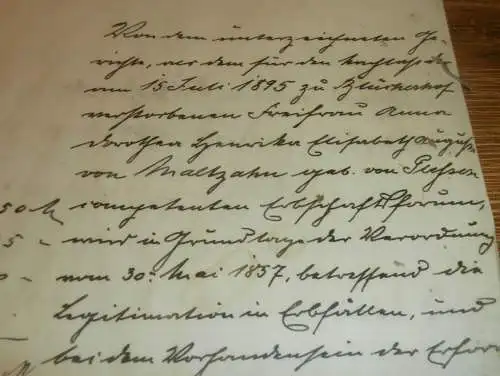 Von dem unterzeichneten Ge-
richte, als dem für den Nachlaß der
am 15 Juli 1895 zu Glückenhof
verstorbenen Freifrau Anna
Dorothea Henrika Elisabeth Auguste
von Maltzahn geb. von Plessen
50 M competenten Erbschaftsforum,
5 - wird in Grundlage der Verordnung
- vom 30. Mai 1857, betreffend die
Legitimation in Erbfällen, und
bei dem Vorhandensein der Erfor